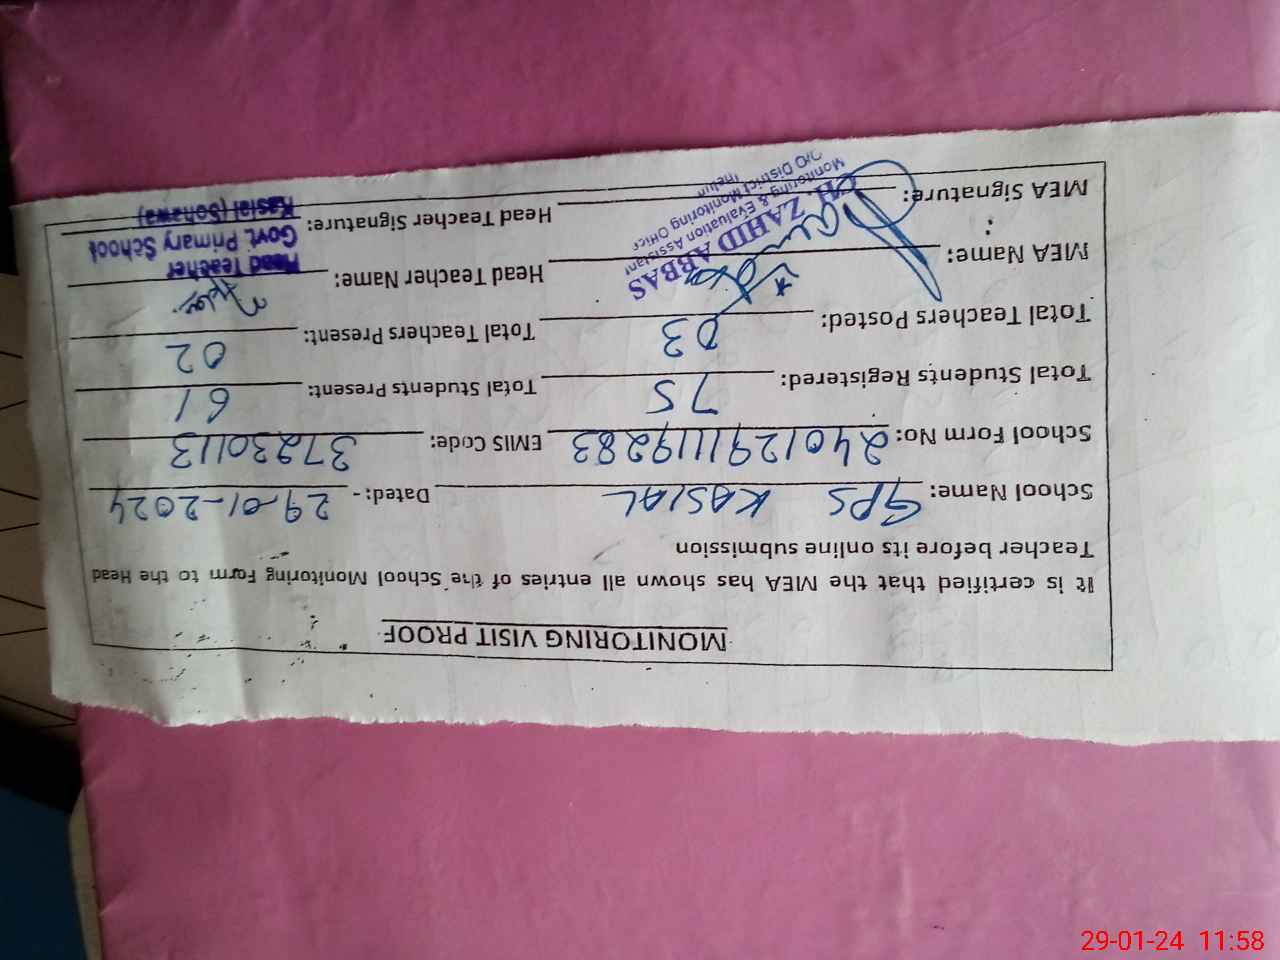 MONITORING VISIT PROOF
It is certified that the MEA has shown all entries of the School Monitoring Form to the Head
Teacher before its online submission
School Name: GPS KASIAL Dated:- 29-01-2024
School Form No: 2401291119283 EMIS Code: 37230113
Total Students Registered: 75 Total Students Present: 61
Total Teachers Posted: 03 Total Teachers Present: 02
MEA Name: Head Teacher Name:
MEA Signature: Head Teacher Signature:
CH. ZAHID ABBAS
Monitoring & Evaluation Assistant
O/O District Monitoring Officer
Jhelum
Head Teacher
Govt. Primary School
Kasial (Sohawa)
29-01-24 11:58